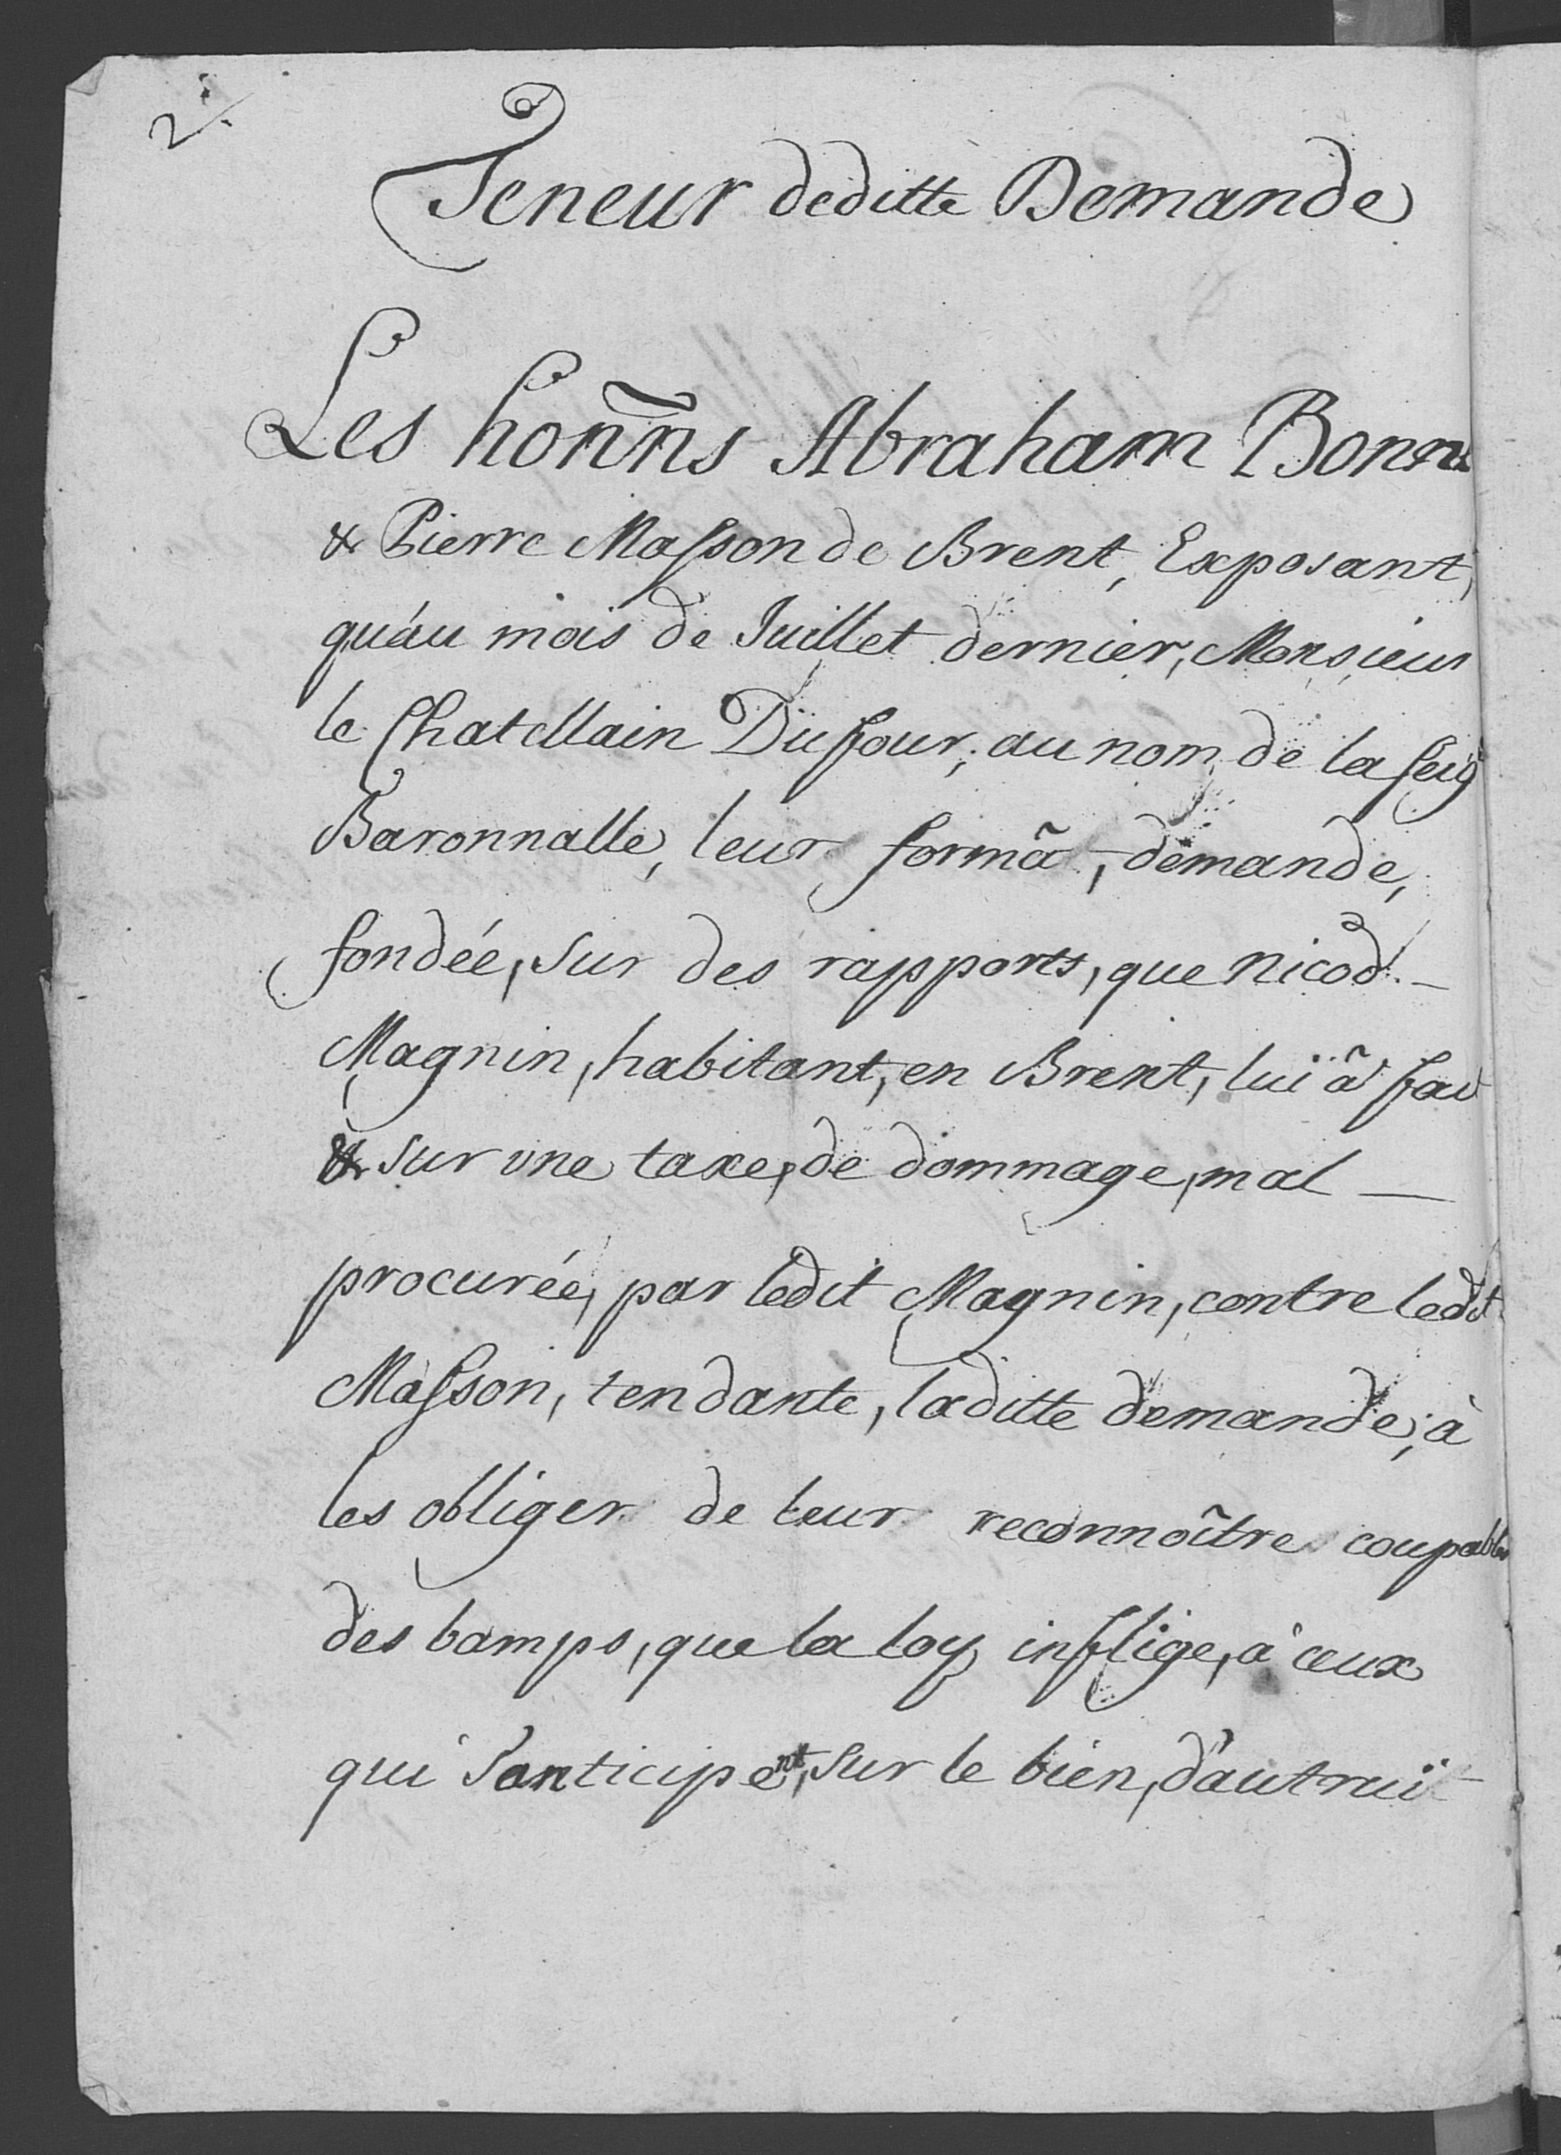 2.
Teneur deditte Demande
Les hoñns Abraham Bonn
& Pierre Masson de Brent, Exposant,
qu'au mois de Juillet dernier, Monsieur
le Chatellain Duffour, au nom, de la seig
Baronnalle, leur formã, demande,
fondée, sur des rapports, que Nicod -
Magnin, habitant, en Brent, lui ã fait
& sur une taxe, de dommage, mal —
procurée, par ledit Magnin, contre ledit
Masson, tendante, laditte demande, à
les obliger de leur reconnoître coupables
des bamps, que la loy inflige, à ceux
qui s'anticipent, sur le bien, d'autruï